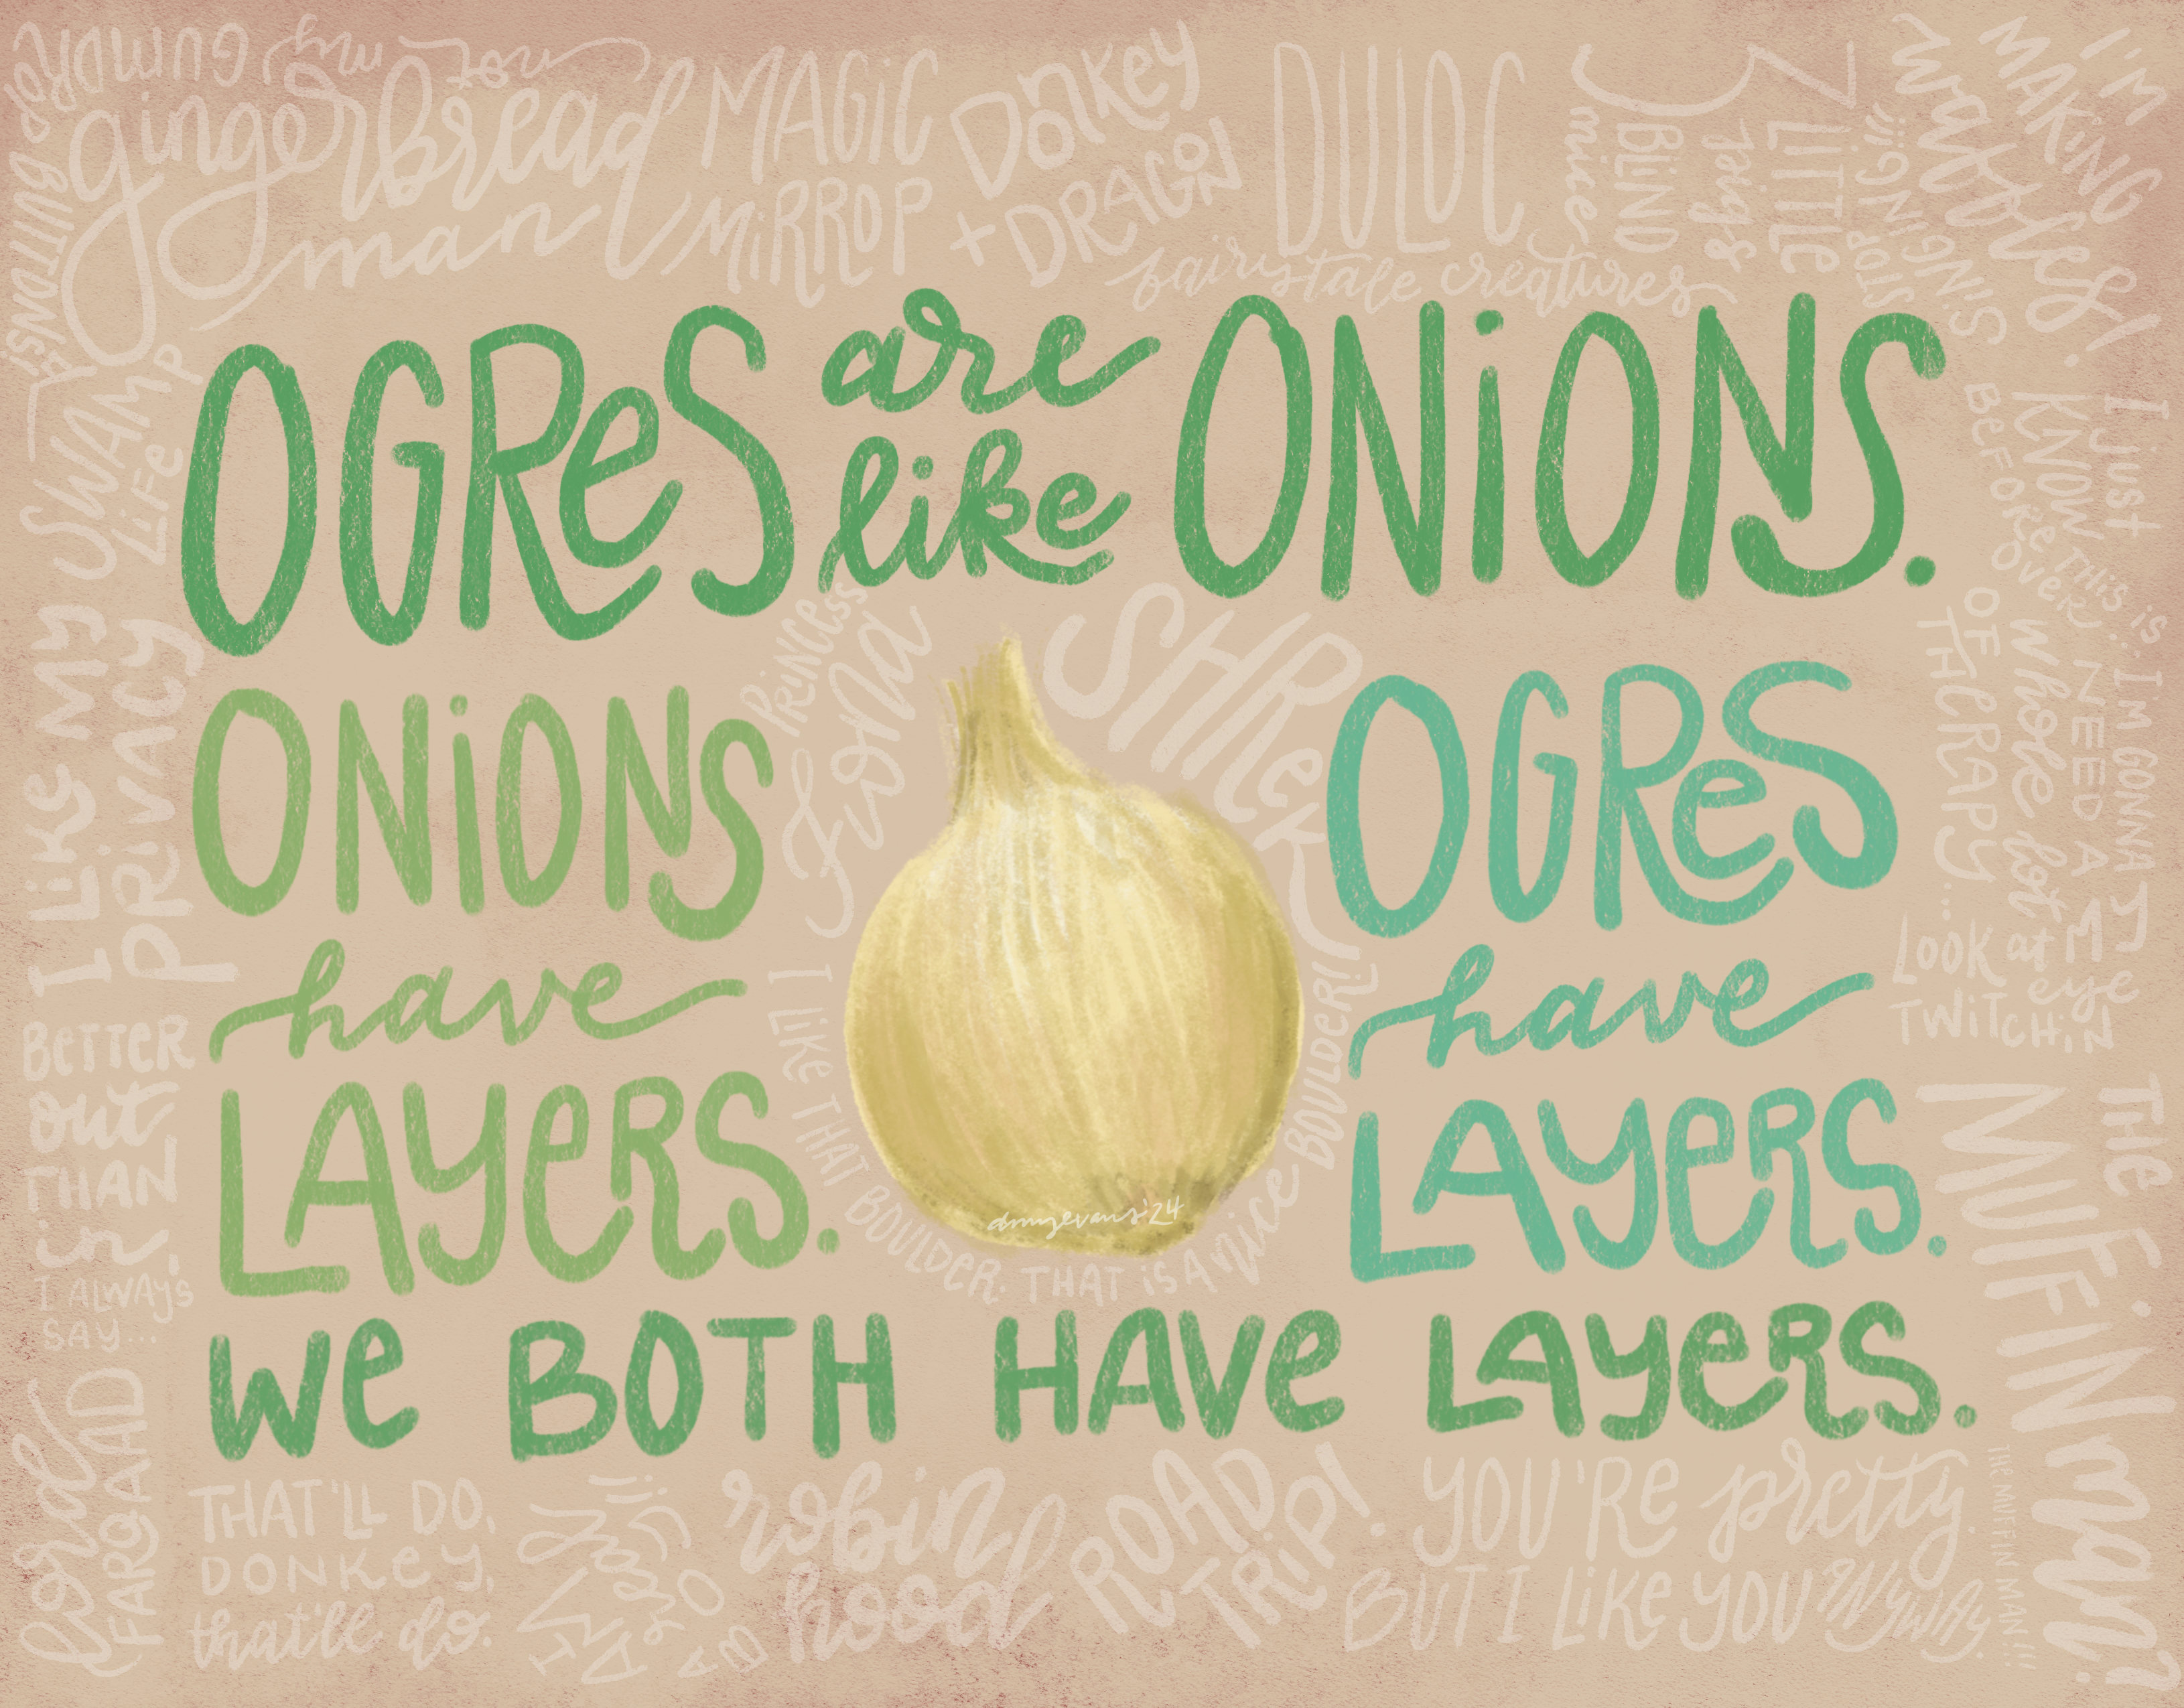 NOT my
GUMDROP
BUTTONS!
gingerbread
man
MAGIC
MIRROR
Donkey
+ DRAGON
DULOC
3 BLIND
mice
3 LITTLE
pigs
STOP
SINGING!!!
I'M
MAKING
waffles!
fairytale creatures
OGRES are like ONIONS.
SWAMP
LIFE
I LIKE MY
PRIVACY
BETTER
out
THAN
in
I ALWAYS
SAY...
LORD
FARQUAAD
PRINCESS
Fiona
SHREK
ONIONS
have
LAYERS.
OGRES
have
LAYERS.
I LIKE THAT BOULDER. THAT IS A nice BOULDER!
dmmyevans '24
WE BOTH HAVE LAYERS.
I just
KNOW THIS IS
BEFORE
OVER...
I'M GONNA
NEED A
whole lot
OF
THERAPY...
LOOK
at
MY eye
TWITCHIN
THE
MUFFIN
man?
THE MUFFIN MAN!!!
THAT'LL DO,
DONKEY,
that'll do.
robin
hood
ROAD
TRIP!
YOU'RE pretty
BUT I LIKE YOU ANYWAY.